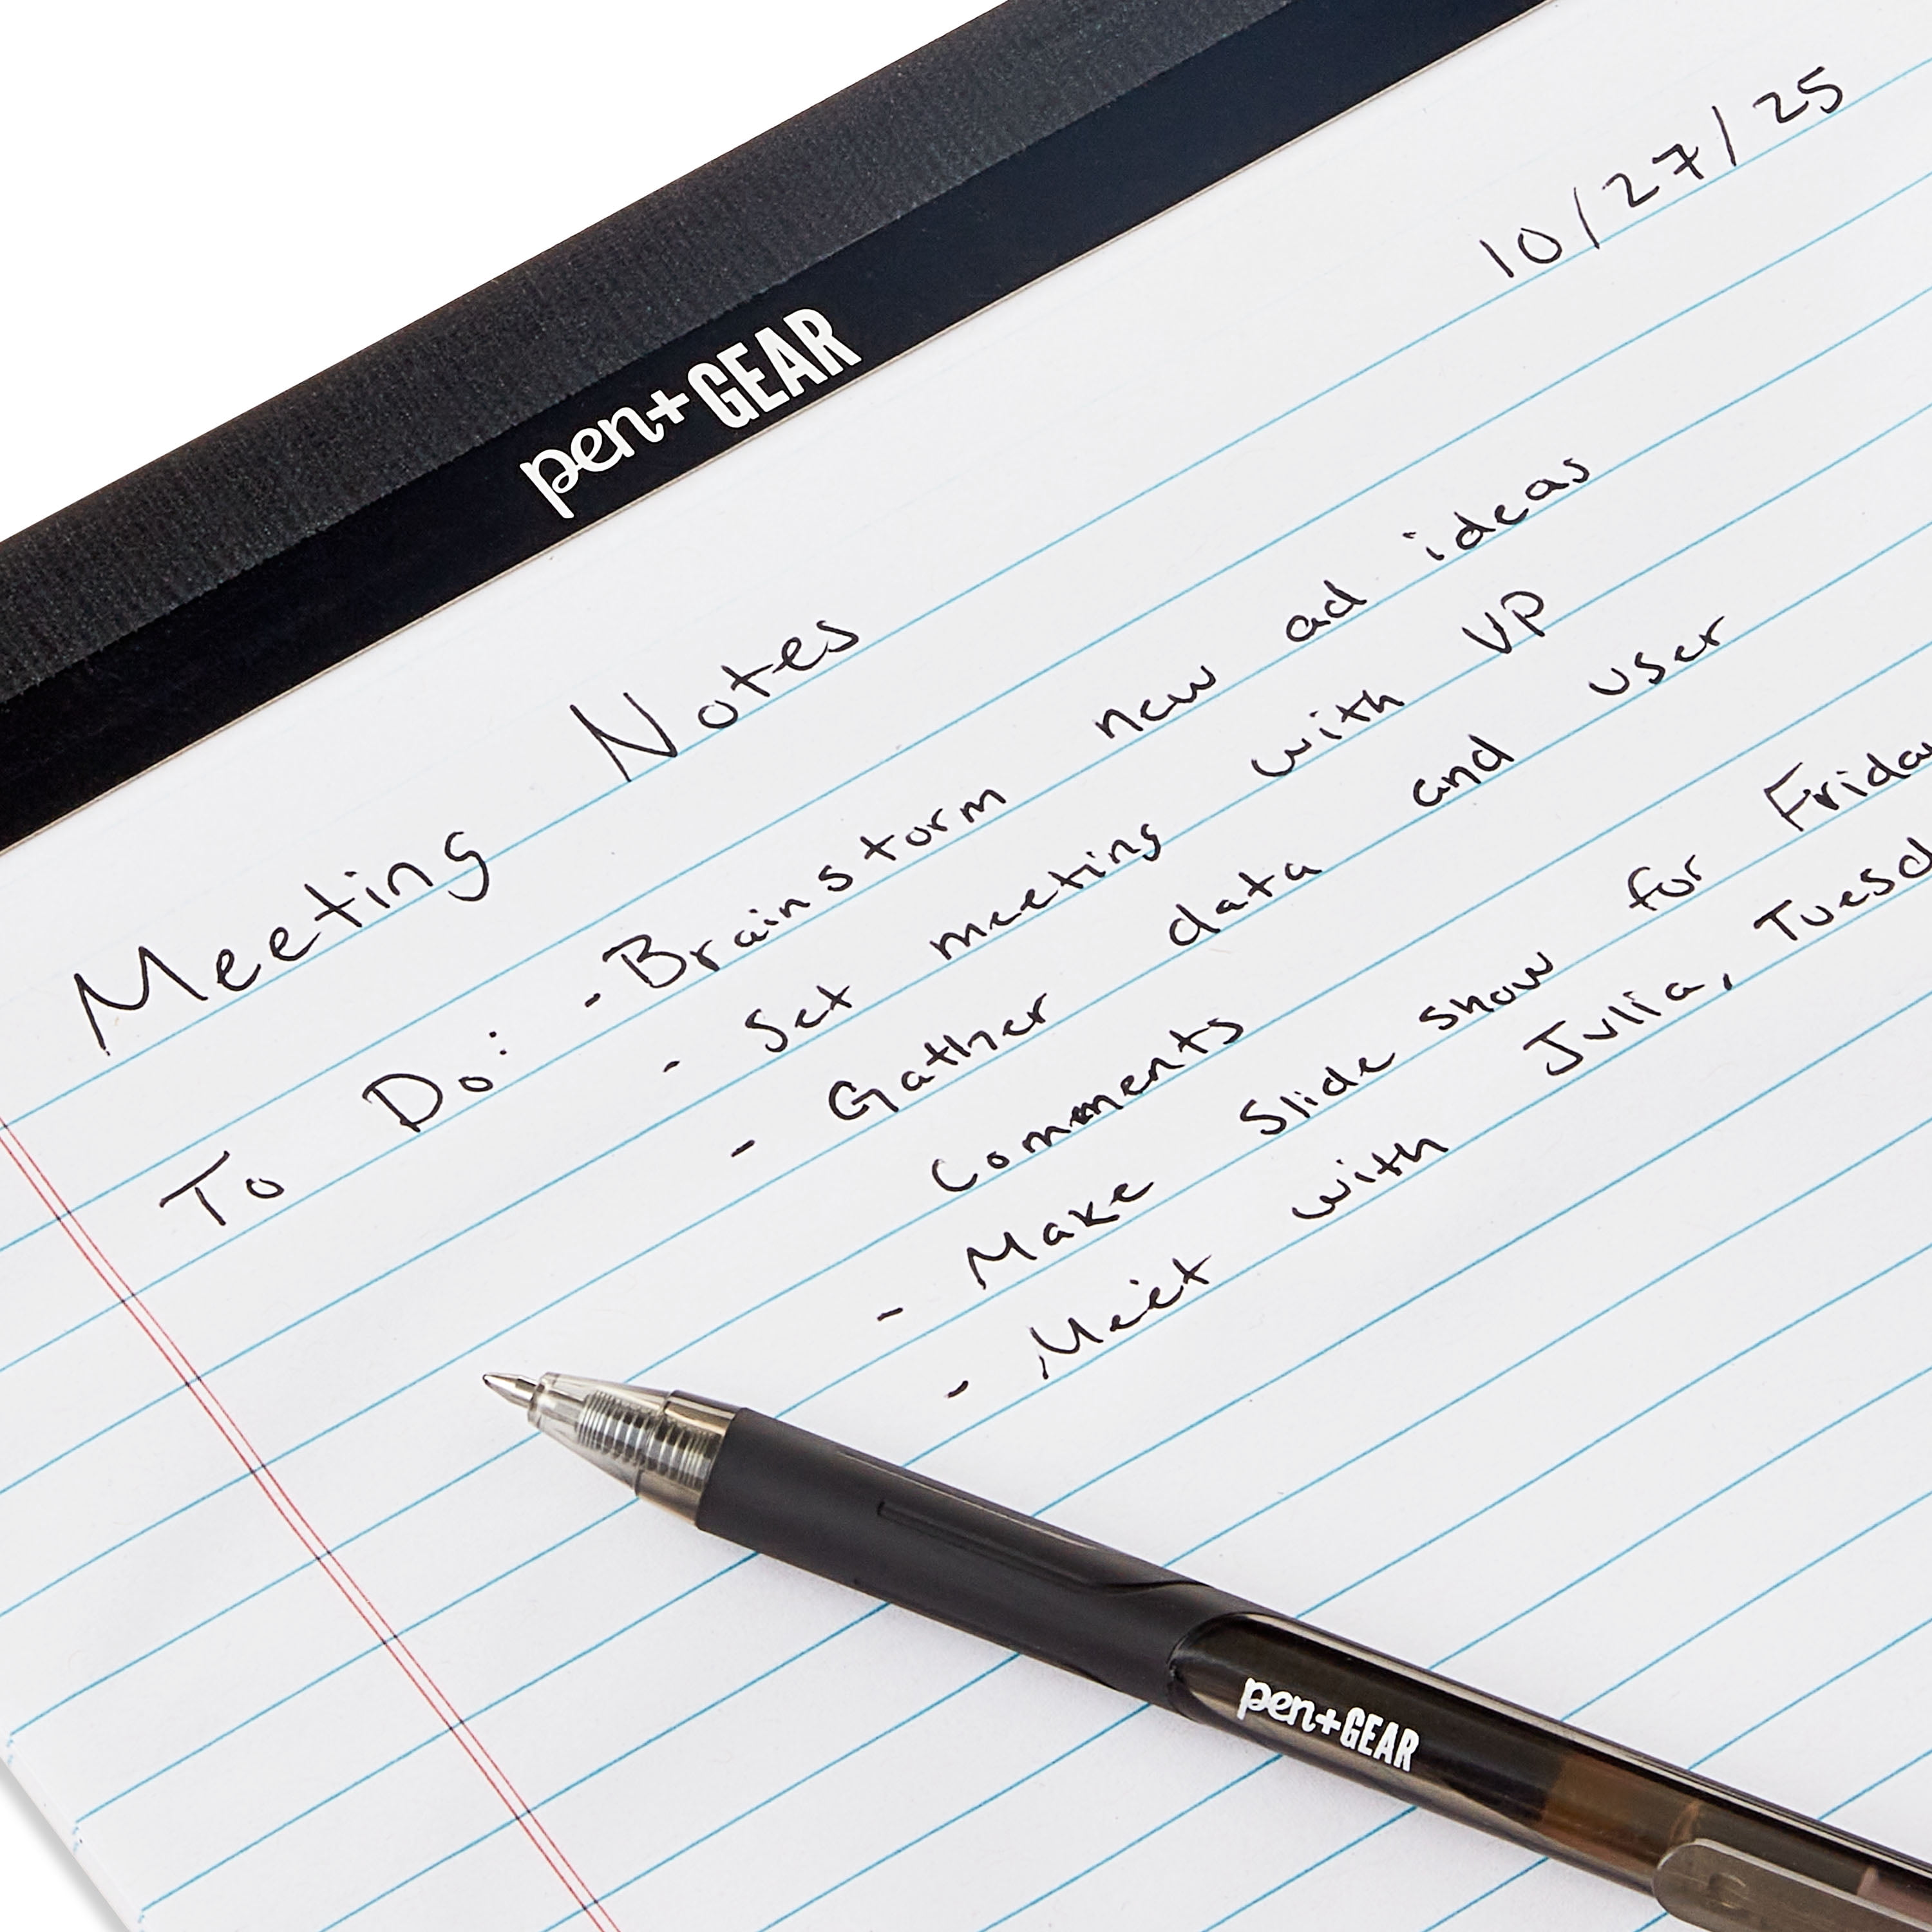 pen+GEAR
10/27/25
Meeting Notes
To Do: - Brainstorm new ad ideas
- Set meeting with VP
- Gather data and user
Comments
- Make Slide show for Frida
- Meet with Julia, Tuesd
pen+GEAR